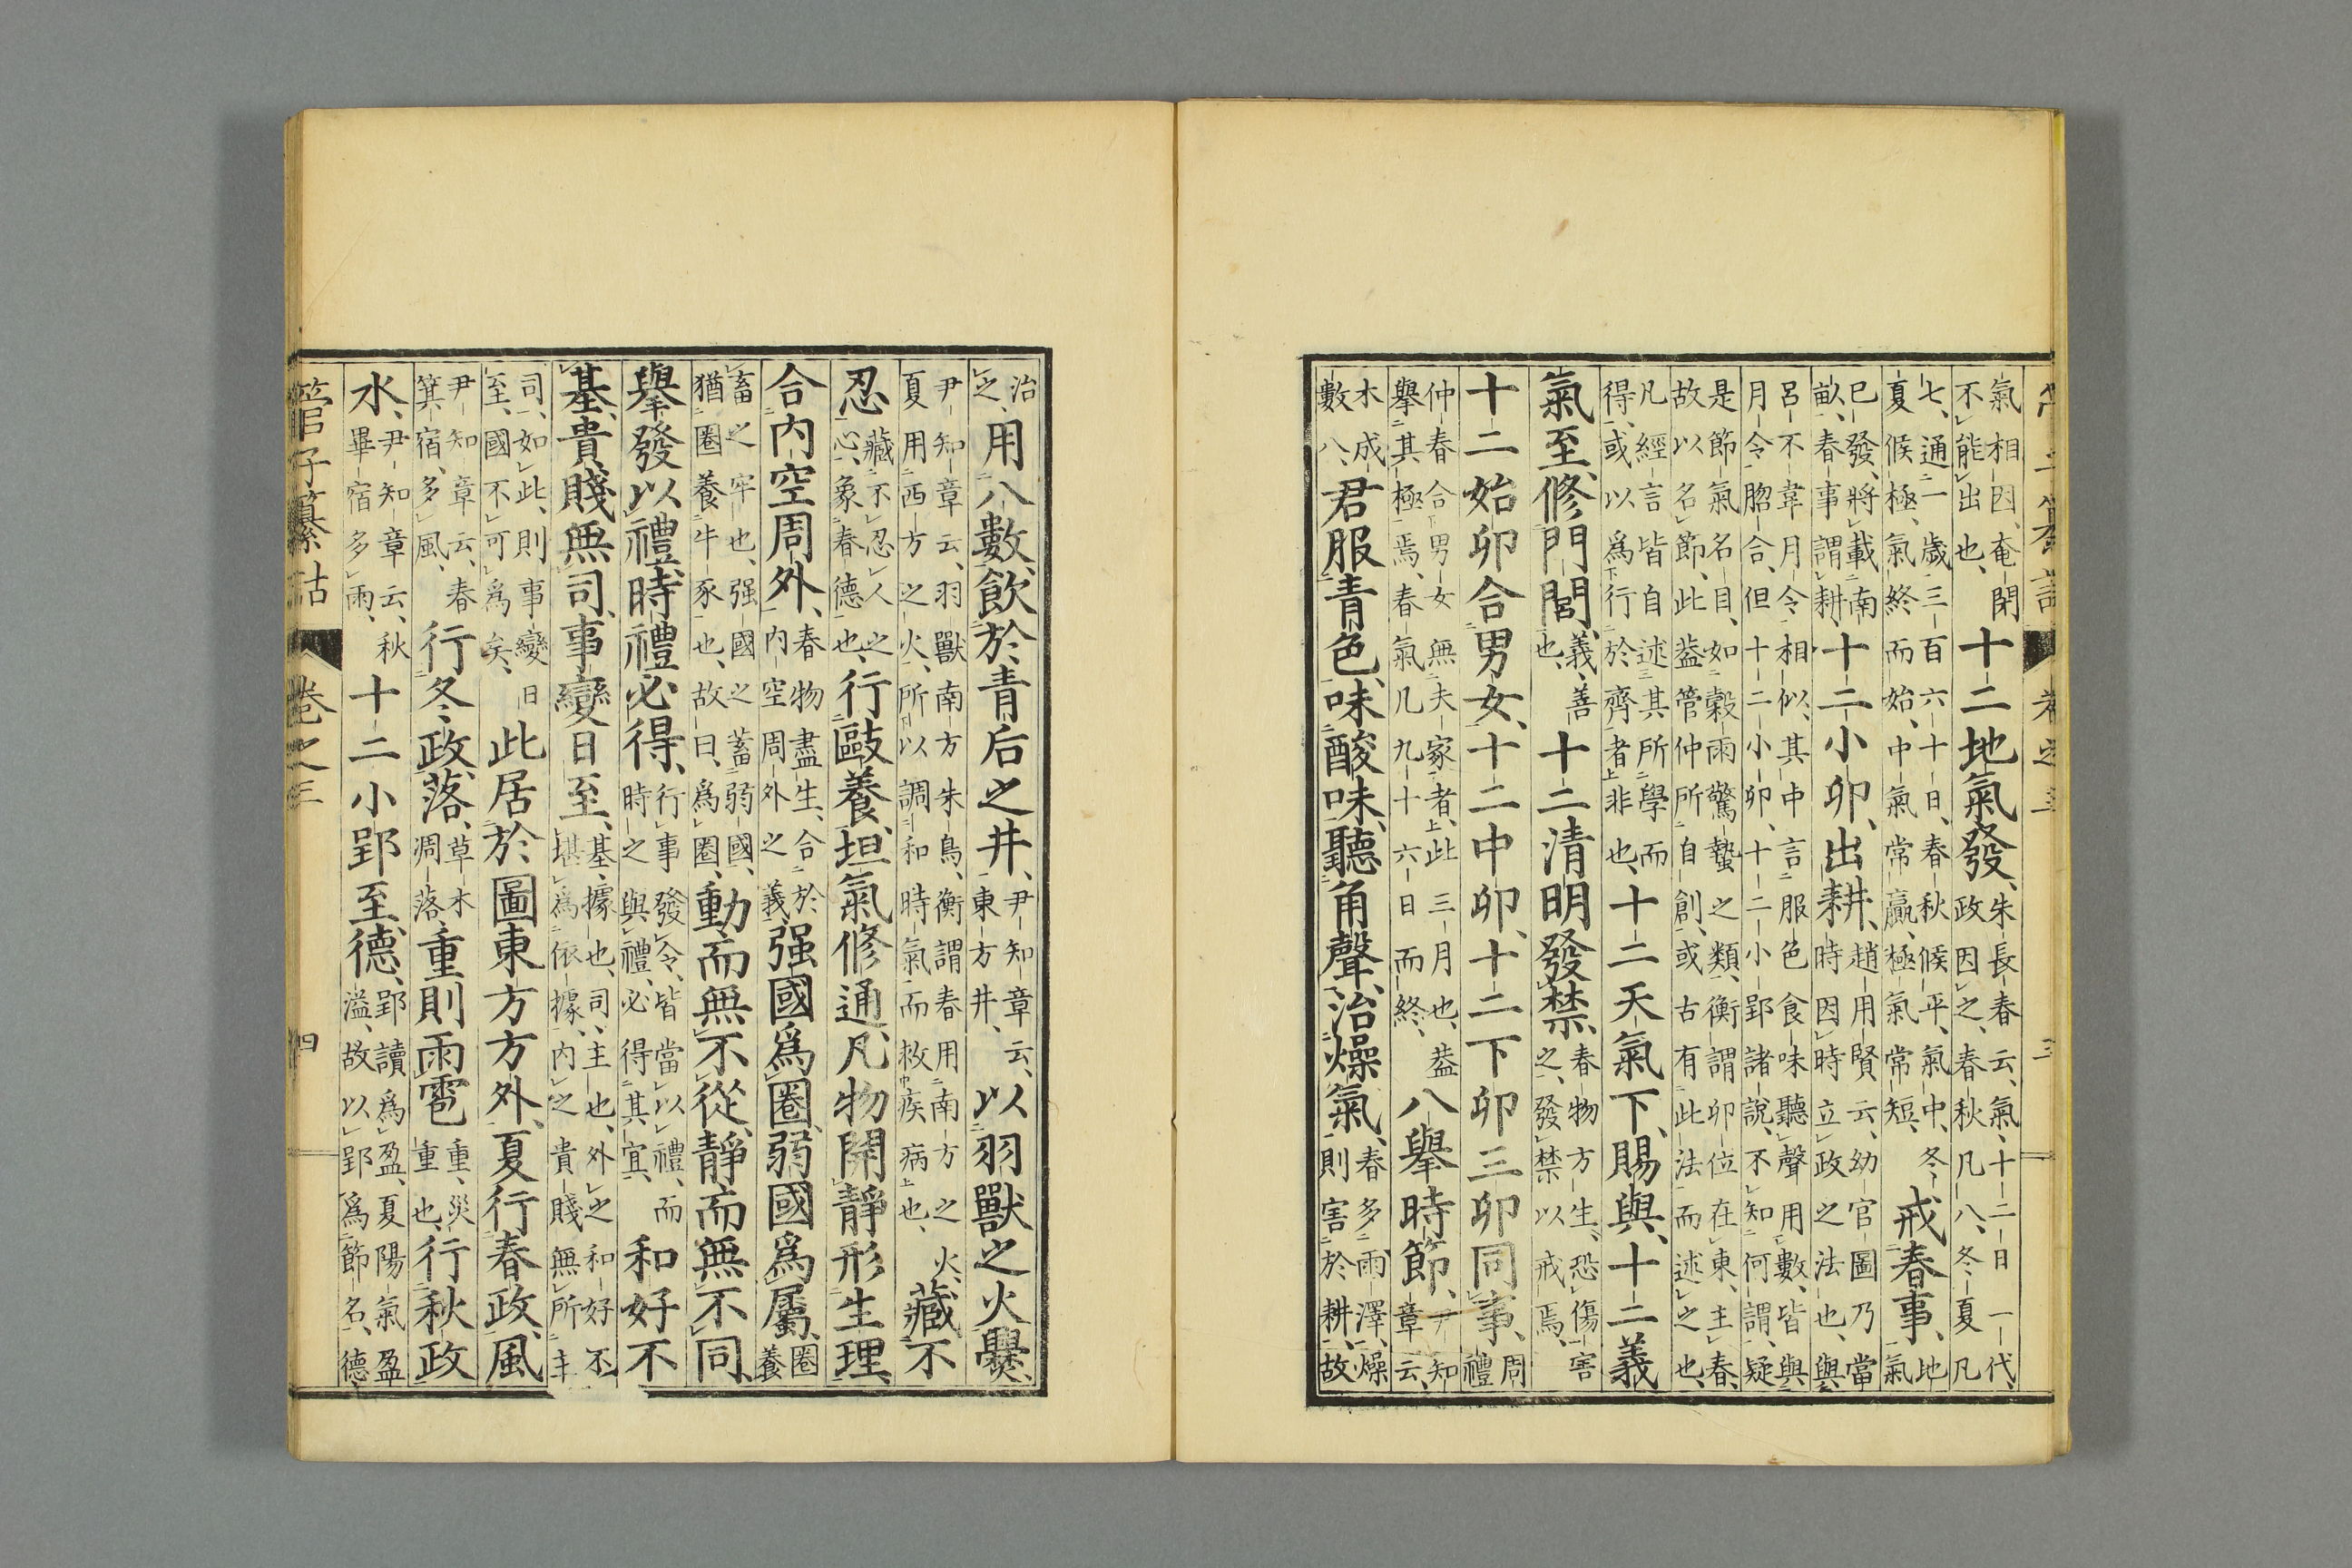 管子纂詁 卷之三 三
氣相因、奄閉不能出也、十二地氣發、朱長春云、氣十二日一代、政因之、春秋凡八、冬夏凡
七、通一歲三百六十日、春秋候平、氣中、冬夏候極、氣終而始、中氣常贏、極氣常短、戒春事、地氣
已發、將載南畝、春事謂耕、十二小卯、出耕、趙用賢云、幼官圖乃當時因時立政之法也、與
呂不韋月令相似、其中言服色食味聽聲用數、皆與月令脗合、但十二小卯、十二小郢諸說、不知何謂、疑
是節氣名目、如穀雨驚蟄之類、衡謂卯位在東、主春、故以名節、此葢管仲所自創、或古有此法而述之也、
凡經言皆自述其所學而得、或以爲行於齊者非也、十二天氣下、賜與、十二義
氣至、修門閭、義、善也、十二清明發禁、春物方生、恐傷害之、發禁以戒焉、
十二始卯合男女、十二中卯、十二下卯三卯同事、周禮
仲春合男女無夫家者、此三月也、葢舉其極焉、春氣凡九十六日而終、八舉時節、尹知章云、
木成數八、君服青色、味酸味、聽角聲、治燥氣、春多雨澤、燥則害於耕、故
治之、用八數、飮於青后之井、尹知章云、東方井、以羽獸之火爨、
尹知章云、羽獸南方朱鳥、衡謂春用南方之火、夏用西方之火、所以調和時氣而救疾病也、藏不
忍、藏不忍人之心、象春德也、行敺養、坦氣修通、凡物開靜形生理、
合内空周外、春物盡生、合於内空周外之義、强國爲圈、弱國爲屬、圈養
畜之牢也、强國之蓄弱國、猶圈養牛豕也、故曰、爲圈、動而無不從、靜而無不同、
舉發以禮、時禮必得、行事發令、皆當以禮、而時之與禮、必得其宜、和好不
基、貴賤無司、事變日至、基、據也、司、主也、外之和好不堪爲依據、内之貴賤無所主
司、如此、則事變日至、國不可爲矣、此居於圖東方方外、夏行春政、風
尹知章云、春箕宿、多風、行冬政、落、草木凋落、重則雨雹、重、災重也、行秋政
水、尹知章云、秋畢宿多雨、十二小郢至、德、郢讀爲盈、夏陽氣盈溢、故以郢爲節名、德、
管子纂詁 卷之三 四